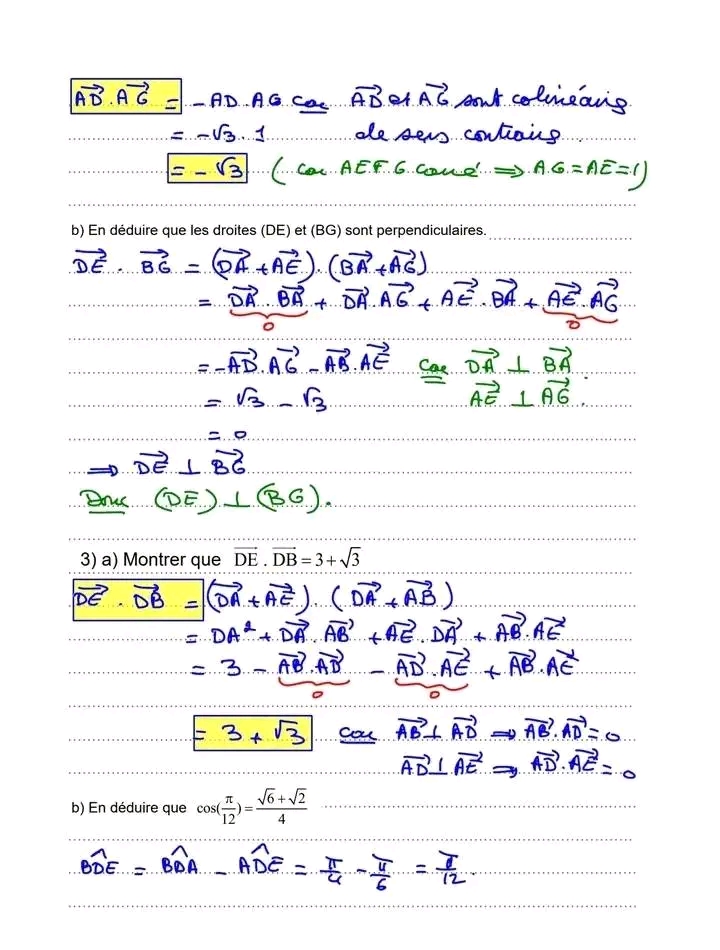 AD⃗ . AG⃗ = - AD . AG car AD⃗ et AG⃗ sont colinéaires
= -√3 . 1 de sens contraires
= -√3 ( car AEFG carré ⟹ AG = AE = 1)
b) En déduire que les droites (DE) et (BG) sont perpendiculaires.
DE⃗ . BG⃗ = (DA⃗ + AE⃗) . (BA⃗ + AG⃗)
= DA⃗ . BA⃗ + DA⃗ . AG⃗ + AE⃗ . BA⃗ + AE⃗ . AG⃗
0 0
= -AD⃗ . AG⃗ - AB⃗ . AE⃗ car DA⃗ ⊥ BA⃗
= √3 - √3 AE⃗ ⊥ AG⃗
= 0
⟹ DE⃗ ⊥ BG⃗
Donc (DE) ⊥ (BG).
3) a) Montrer que DE⃗ . DB⃗ = 3 + √3
DE⃗ . DB⃗ = (DA⃗ + AE⃗) . (DA⃗ + AB⃗)
= DA² + DA⃗ . AB⃗ + AE⃗ . DA⃗ + AB⃗ . AE⃗
= 3 - AB⃗ . AD⃗ - AD⃗ . AE⃗ + AB⃗ . AE⃗
0 0
= 3 + √3 car AB⃗ ⊥ AD⃗ ⟹ AB⃗ . AD⃗ = 0
AD⃗ ⊥ AE⃗ ⟹ AD⃗ . AE⃗ = 0
b) En déduire que cos(π/12) = (√6 + √2)/4
BD̂E = BD̂A - AD̂E = π/4 - π/6 = π/12 .